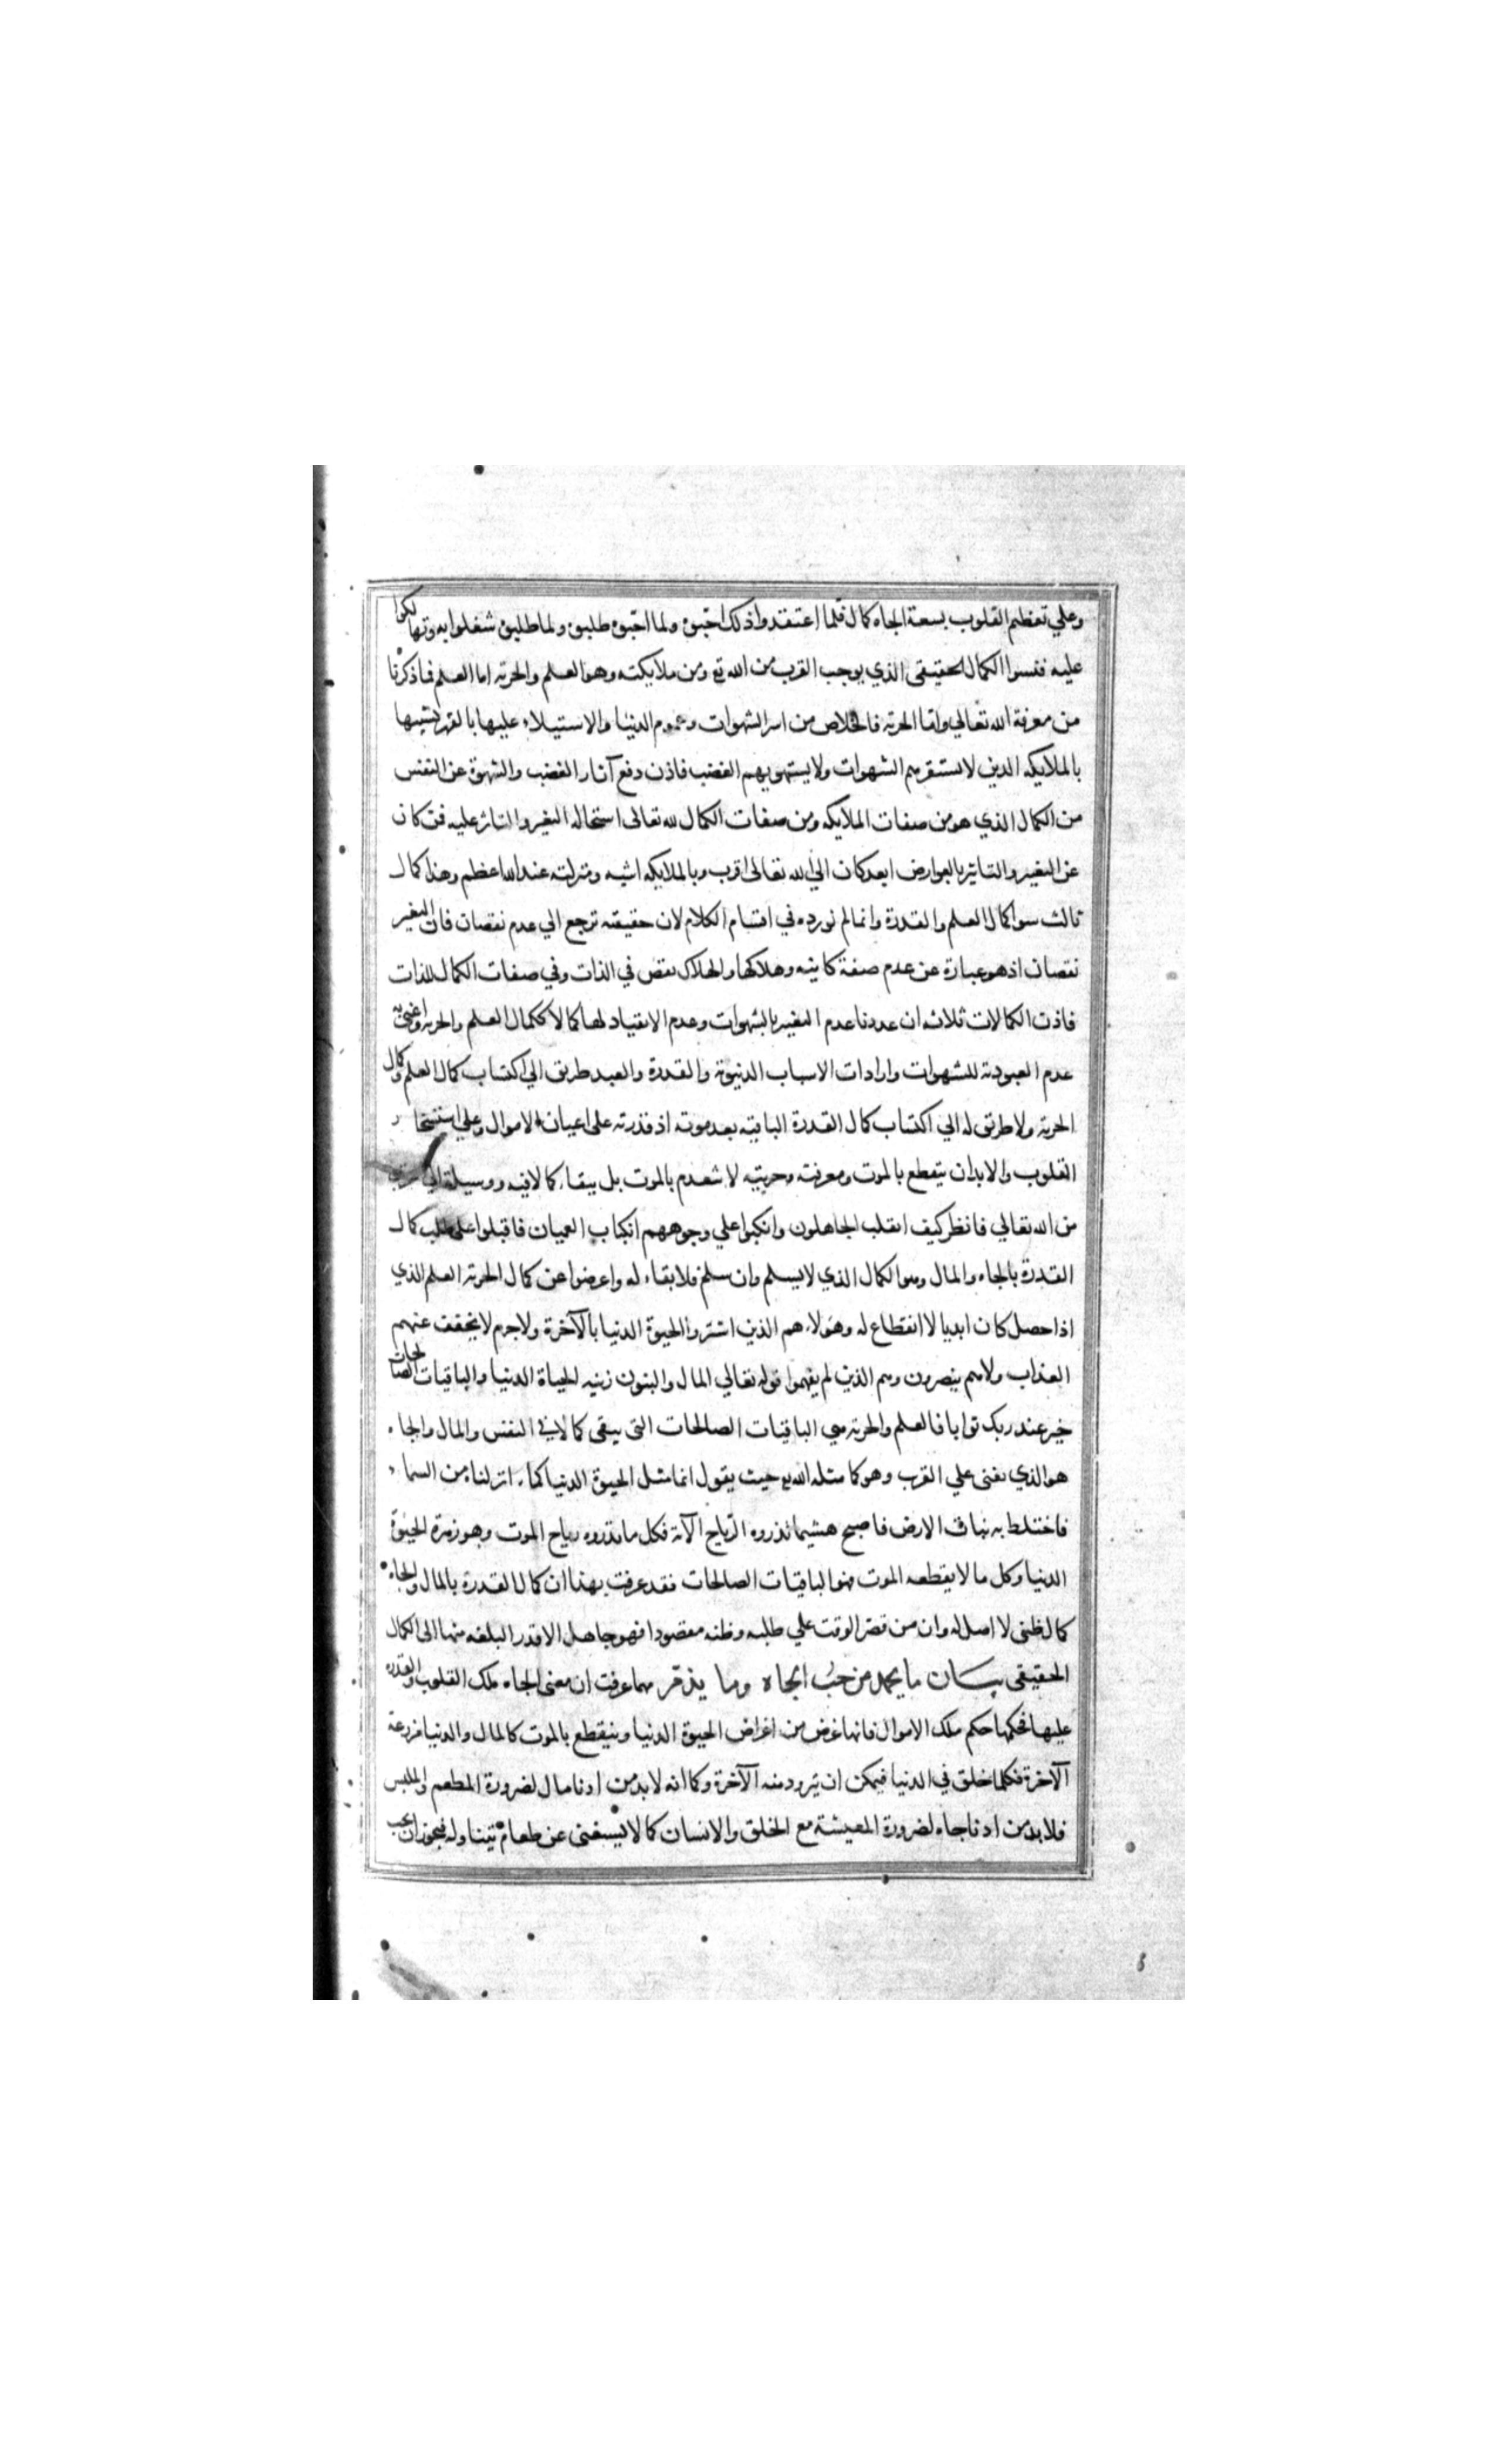 وعلي تعظيم القلوب بسعة الجاه كمال فلما اعتقدوا ذلك احبوه ولما احبوه طلبوه ولما طلبوه شغلوا به وتهالكوا
عليه فنسوا الكمال الحقيقى الذي يوجب القرب من الله تع ومن ملايكته وهو العلم والحرية اما العلم فما ذكرنا
من معرفة الله تعالي واما الحرية فالخلاص من اسر الشهوات وعموم الدنيا والاستيلاء عليها بالقهر تشبيها
بالملايكه الذين لا يستقرهم الشهوات ولا يستهويهم الغضب فاذن دفع آثار الغضب والشهوة عن النفس
من الكمال الذي هو من صفات الملايكه ومن صفات الكمال لله تعالى استحاله التغير والتاثر عليه فمن كان
عن التغير والتاثير بالعوارض ابعد كان الي الله تعالى اقرب وبالملايكه اشبه ومنزلته عند الله اعظم وهذا كمال
ثالث سوا كمال العلم والقدرة وانما لم نورده في اقسام الكلام لان حقيقته ترجع الي عدم نقصان فان التغير
نقصان اذ هو عبارة عن عدم صفة كاينه وهلاكها والهلاك نقص في الذات وفي صفات الكمال للذات
فاذن الكمالات ثلاث ان عددنا عدم التغير بالشهوات وعدم الانقياد لها كمالا ككمال العلم والحرية واعني به
عدم العبودية للشهوات وارادات الاسباب الدنيوية والقدرة والعبد طريق الي اكتساب كمال العلم وكمال
الحرية ولا طريق له الي اكتساب كمال القدرة الباقيه بعد موته اذ قدرته على اعيان الاموال وعلي استسخار
القلوب والابدان ينقطع بالموت ومعرفته وحريته لا ينعدم بالموت بل يبقاء كمالا فيه ووسيلة الي القرب
من الله تعالي فانظر كيف انقلب الجاهلون وانكبوا علي وجوههم انكباب العميان فاقبلوا على طلب كمال
القدرة بالجاه والمال وهو الكمال الذي لا يسلم وان سلم فلا بقاء له واعرضوا عن كمال الحرية العلم الذي
اذا حصل كان ابديا لا انقطاع له وهولاء هم الذين اشتروا الحيوة الدنيا بالآخرة ولا جرم لا يخفف عنهم
العذاب ولا هم ينصرون وهم الذين لم يفهموا قوله تعالي المال والبنون زينه الحياة الدنيا والباقيات الصالحات
خير عند ربك ثوابا فالعلم والحرية هي الباقيات الصالحات التى يبقى كمالا في النفس والمال والجاه
هو الذي يفنى علي القرب وهو كما مثله الله تع حيث يقول انما مثل الحيوة الدنيا كماء انزلناه من السماء
فاختلط به نبات الارض فاصبح هشيما تذروه الرياح الآية فكل ما تذروه رياح الموت وهو زهرة الحيوة
الدنيا وكل ما لا يقطعه الموت فهو الباقيات الصالحات فقد عرفت بهذا ان كمال القدرة بالمال والجاه
كمال ظنى لا اصل له وان من قصر الوقت علي طلبه وظنه مقصودا فهو جاهل الا قدر البلغه منها الى الكمال
الحقيقى بيان ما يحمد من حب الجاه وما يذم مهما عرفت ان معنى الجاه ملك القلوب والقدره
عليها فحكمها حكم ملك الاموال فانها غرض من اغراض الحيوة الدنيا وينقطع بالموت كالمال والدنيا مزرعة
الآخرة فكلما خلق في الدنيا فيمكن ان يزود منه الآخرة وكما انه لا بد من ادنا مال لضرورة المطعم والملبس
فلا بد من ادنا جاه لضرورة المعيشة مع الخلق والانسان كما لا يستغنى عن طعام يتناوله فيجوز ان يحب